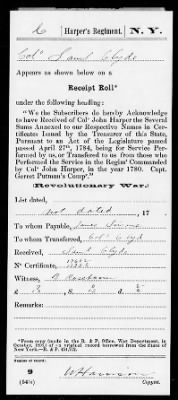 C | Harper's Regiment. | N. Y.
Col° Saml Clyde
Appears as shown below on a
Receipt Roll*
under the following heading:
"We the Subscribers do hereby Acknowledge
to have Received of Col° John Harper the Several
Sums Annexed to our Respective Names in Cer-
tificates Issued by the Treasurer of this State,
Pursuant to an Act of the Legislature passed
passed April 27th, 1784, being for Service Per-
formed by us, or Transferred to us from those who
Performed the Service in the Regim' Commanded
by Col° John Harper, in the year 1780. Capt.
Gerret Putman's Comp'."
(Revolutionary War.)
List dated,
not dated, 17
To whom Payable,
To whom Transferred, Col° Clyd
Received, Saml Clyde
N° Certificate,
Witness,
£
Remarks:
*From copy (made in the R. & P. Office, War Department, in
of an original record borrowed from the State of
New York.—R. & P.
9
Copyist.